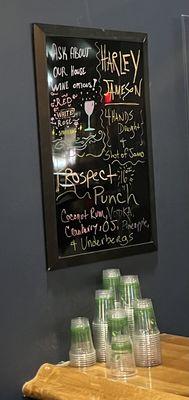 ASK ABOUT
OUR HOUSE
WINE OPTIONS!
RED
WHITE
ROSE
HARLEY
JAMESON
4 HANDS
Draught
&
Shot of Jamo
Prospect
Punch
Coconut Rum, Vodka,
Cranberry, OJ, Pineapple,
& Underbergs